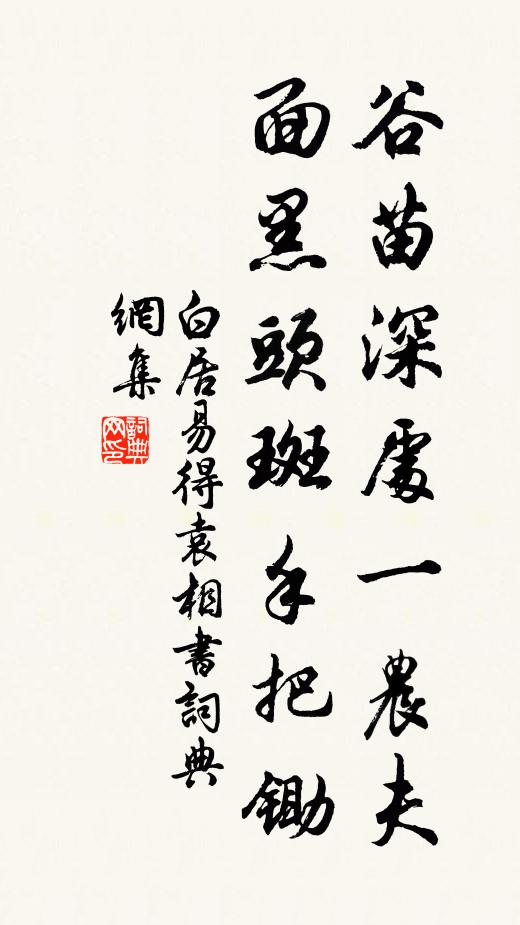 谷苗深處一農夫
面黑頭斑手把鋤
白居易得袁相書詞典
網集
詞典
网印